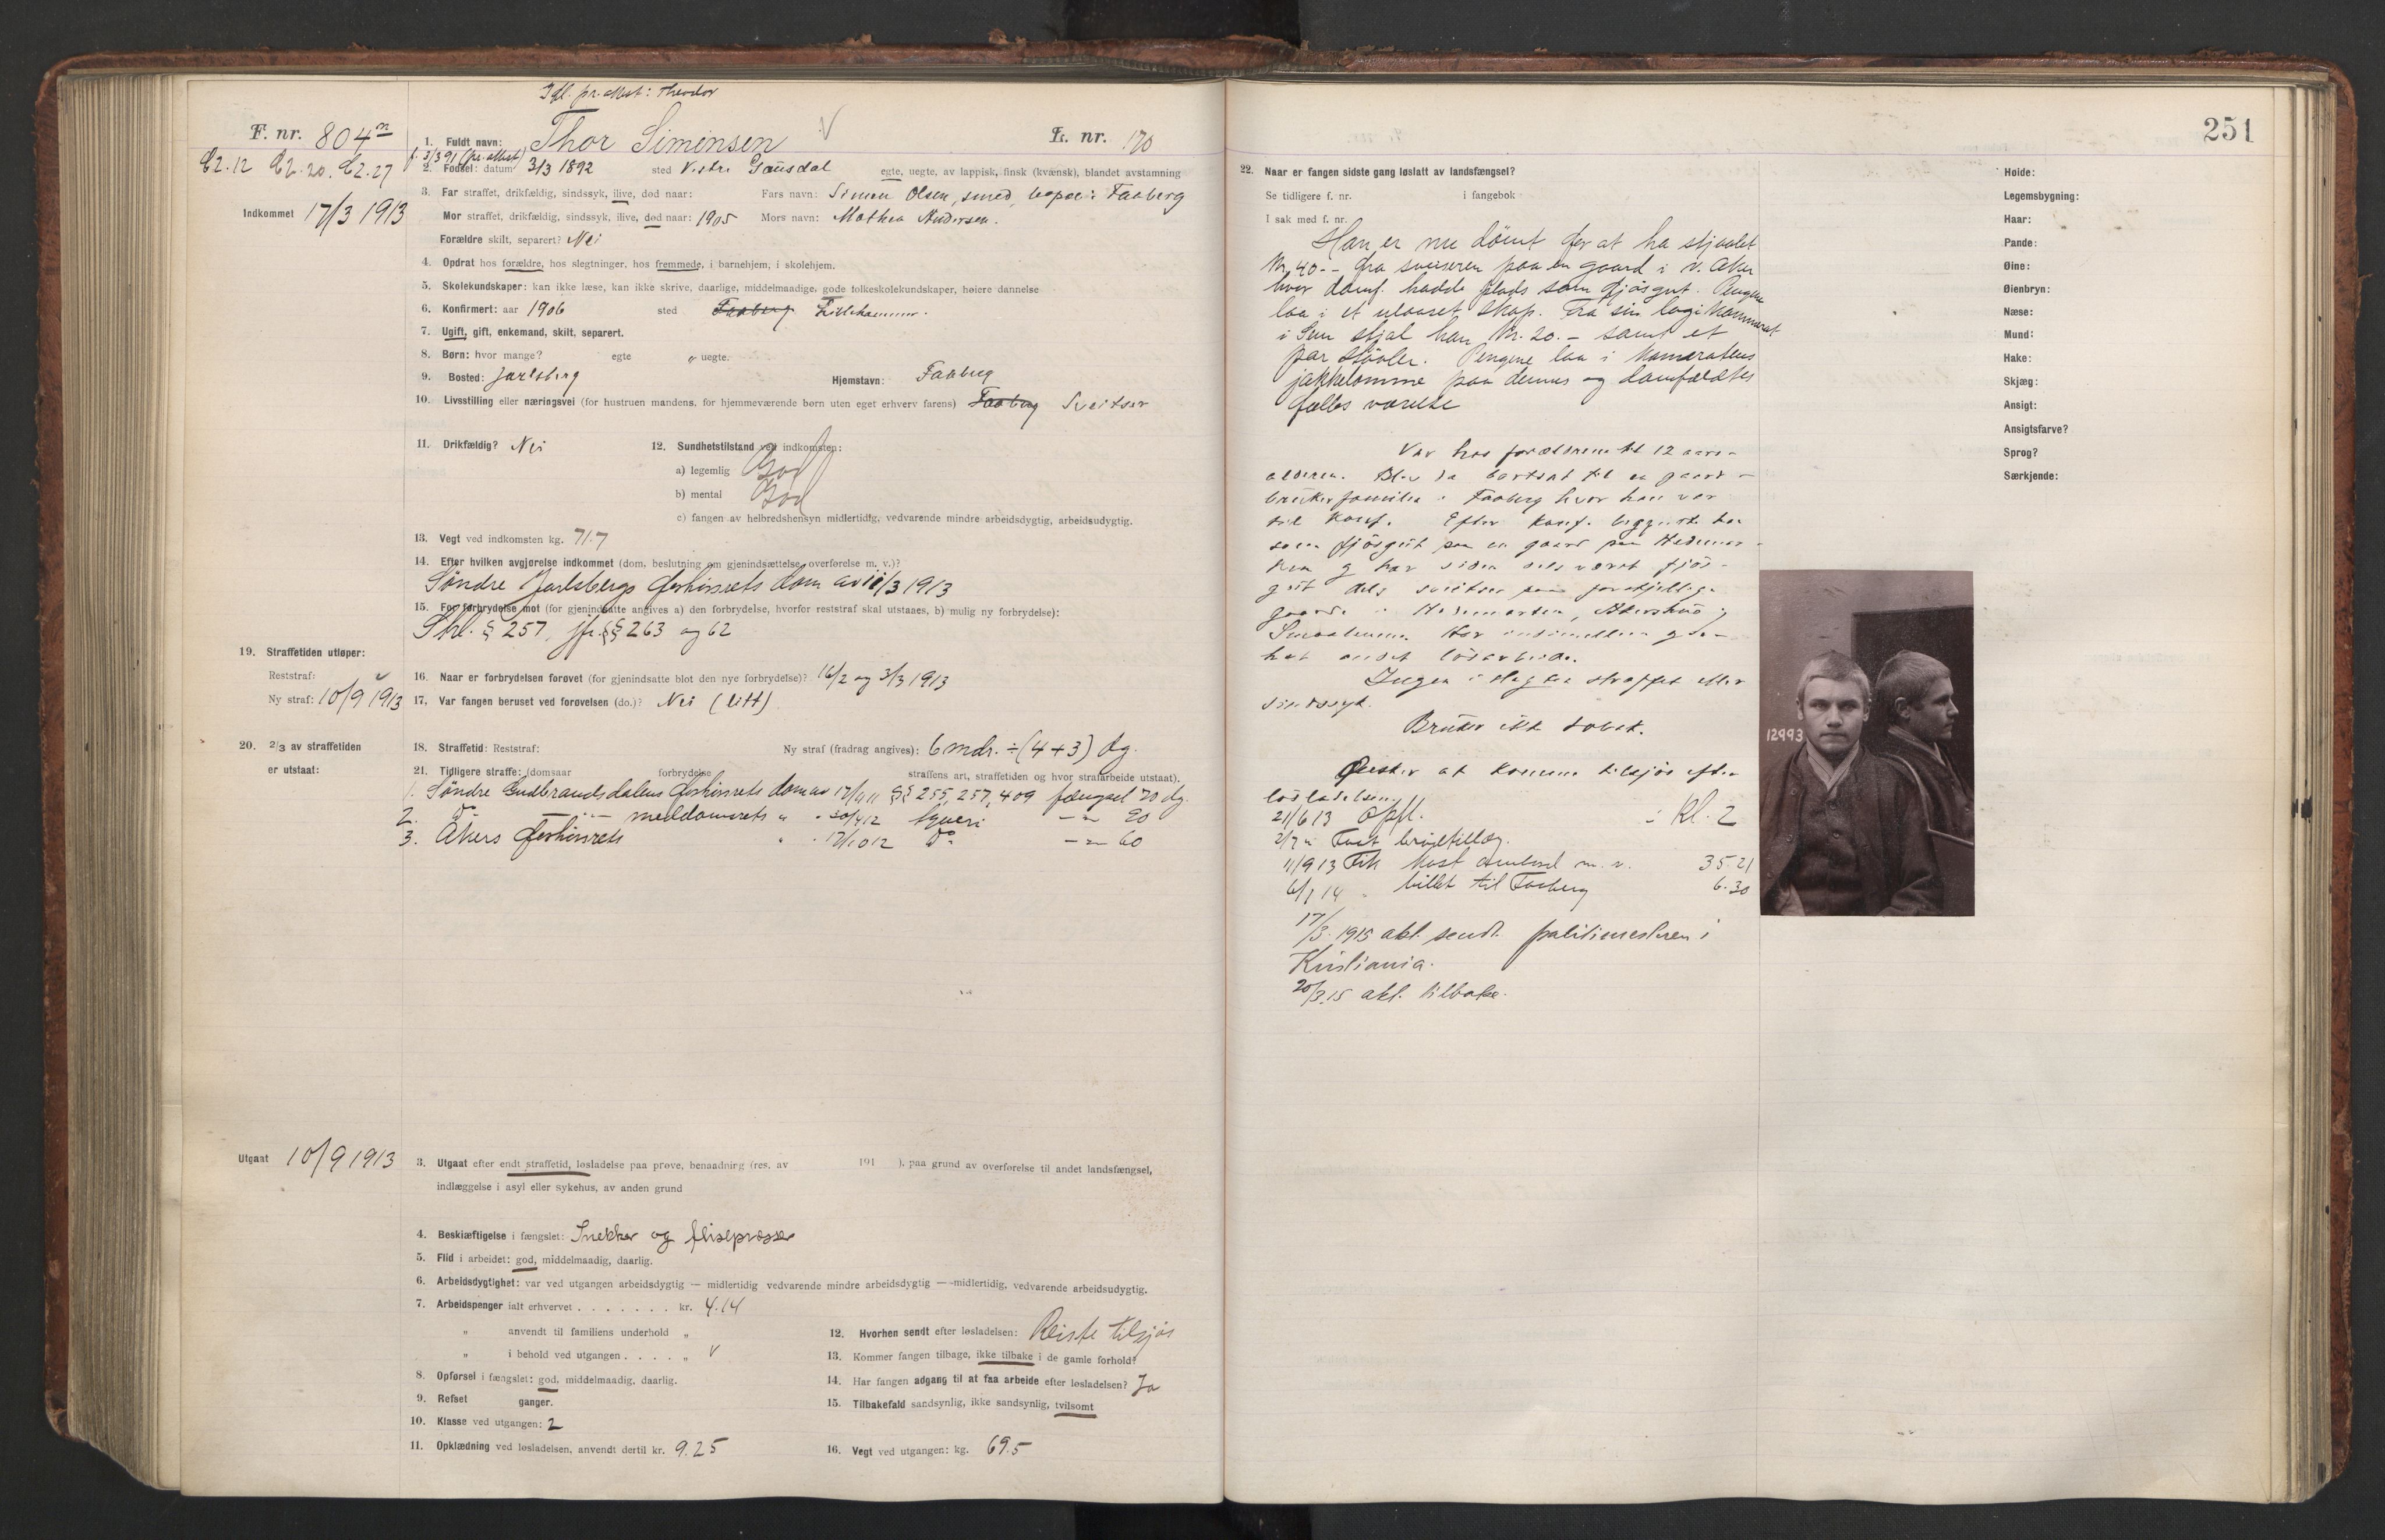 Ifl. pr. attest: Theodor
F. nr. 804
C2.12 C2.20. C2.27
Indkommet 17/3 1913
1. Fuldt navn: Thor Simensen V
L. nr. 170
f. 3/3 91 (pr. attest)
2. Fødsel: datum 3/3 1892 sted Vestre Gausdal egte, uegte, av lappisk, finsk (kvænsk), blandet avstamning
3. Far straffet, drikfældig, sindssyk, ilive, død naar: Fars navn: Simen Olsen, smed, Faaberg
Mor straffet, drikfældig, sindssyk, ilive, død naar: 1905 Mors navn: Mathea Andersen.
Forældre skilt, separert? Nei
4. Opdrat hos forældre, hos slegtninger, hos fremmede, i barnehjem, i skolehjem.
5. Skolekundskaper: kan ikke læse, kan ikke skrive, daarlige, middelmaadige, gode folkeskolekundskaper, høiere dannelse
6. Konfirmert: aar 1906 sted Faaberg Lillehammer.
7. Ugift, gift, enkemand, skilt, separert.
8. Børn: hvor mange? egte „ uegte.
9. Bosted: Jarlsberg Hjemstavn: Faaberg
10. Livsstilling eller næringsvei (for hustruen mandens, for hjemmeværende børn uten eget erhverv farens) Faaberg Sveitser
11. Drikfældig? Nei
12. Sundhetstilstand ved indkomsten:
a) legemlig God
b) mental God
c) fangen av helbredshensyn midlertidig, vedvarende mindre arbeidsdygtig, arbeidsudygtig.
13. Vegt ved indkomsten kg. 71.7
14. Efter hvilken avgjørelse indkommet (dom, beslutning om gjenindsættelse, overførelse m. v.)?
Søndre Jarlsbergs forhørsrets dom av 11/3 1913
15. For forbrydelse mot (for gjenindsatte angives a) den forbrydelse, hvorfor reststraf skal utstaaes, b) mulig ny forbrydelse):
Strl. § 257, jfr. §§ 263 og 62
16. Naar er forbrydelsen forøvet (for gjenindsatte blot den nye forbrydelse)? 16/2 og 3/3 1913
17. Var fangen beruset ved forøvelsen (do.)? Nei (litt)
18. Straffetid: Reststraf: Ny straf (fradrag angives): 6 mdr. ÷ (4 + 3) dg.
19. Straffetiden utløper:
Reststraf:
Ny straf: 10/9 1913
20. 2/3 av straffetiden
er utstaat:
21. Tidligere straffe: (domsaar forbrydelse straffens art, straffetiden og hvor strafarbeide utstaat).
1. Søndre Gudbrandsdalens forhørsrets dom av 17/9 11 §§ 255, 257, 409 fængsel 70 dg.
2. do meddomsrets „ 30/4 12 tyveri — „ — 90
3. Akers forhørsrets „ 17/10 12 do — „ — 60
Utgaat 10/9 1913
3. Utgaat efter endt straffetid, løsladelse paa prøve, benaadning (res. av 191 ), paa grund av overførelse til andet landsfængsel,
indlæggelse i asyl eller sykehus, av anden grund
4. Beskjæftigelse i fængslet: Snekker og flisepresser
5. Flid i arbeidet: god, middelmaadig, daarlig.
6. Arbeidsdygtighet: var ved utgangen arbeidsdygtig — midlertidig vedvarende mindre arbeidsdygtig — midlertidig, vedvarende arbeidsudygtig.
7. Arbeidspenger ialt erhvervet . . . . . . . kr. 4.14
„ anvendt til familiens underhold „
„ i behold ved utgangen . . . . „ V
8. Opførsel i fængslet: god, middelmaadig, daarlig.
9. Refset ganger.
10. Klasse ved utgangen: 2
11. Opklædning ved løsladelsen, anvendt dertil kr. 9.25
12. Hvorhen sendt efter løsladelsen: Reiste tilsjøs
13. Kommer fangen tilbage, ikke tilbake i de gamle forhold?
14. Har fangen adgang til at faa arbeide efter løsladelsen? Ja
15. Tilbakefald sandsynlig, ikke sandsynlig, tvilsomt
16. Vegt ved utgangen: kg. 69.5
251
22. Naar er fangen sidste gang løslatt av landsfængsel?
Se tidligere f. nr. i fangebok
I sak med f. nr.
Han er nu dømt for at ha stjaalet
kr. 40.- fra sveiseren paa en gaard i V. Aker
hvor domf. hadde plads som fjøsgut. Pengene
laa i et ulaaset skap. Fra sin logikammerat
i Sem stjal han kr. 20.- samt et
par støvler. Pengene laa i kameratens
jakkelomme paa dennes og domfældtes
fælles værelse
Var hos forældrene til 12 aars-
alderen. Blev da bortsat til en gaard-
brukerfamilie i Faaberg hvor han var
til konf. Efter konf. begyndte han
som fjøsgut paa en gaard paa Hedemar-
ken og har siden dels været fjøs-
gut dels sveitser paa forskjellige
gaarde i Hedemarken, Akershus og
Smaalenene. Har indimellem ogsaa
hat andet løsarbeide.
Ingen i slegten straffet eller
sindssyk.
Bruker ikke tobak.
Ønsker at komme tilsjøs efter
løsladelsen.
21/6 13 Opfl. : Kl. 2
2/7 „ Faat brødtillæg.
11/9 13 Fik kost ombord m. v. 35.21
6/1 14 „ billet til Faaberg 6.30
17/3. 1915 akt. sendt politimesteren i
Kristiania.
20/3.15 akt. tilbake.
Høide:
Legemsbygning:
Haar:
Pande:
Øine:
Øienbryn:
Næse:
Mund:
Hake:
Skjæg:
Ansigt:
Ansigtsfarve?
Sprog?
Særkjende:
12993